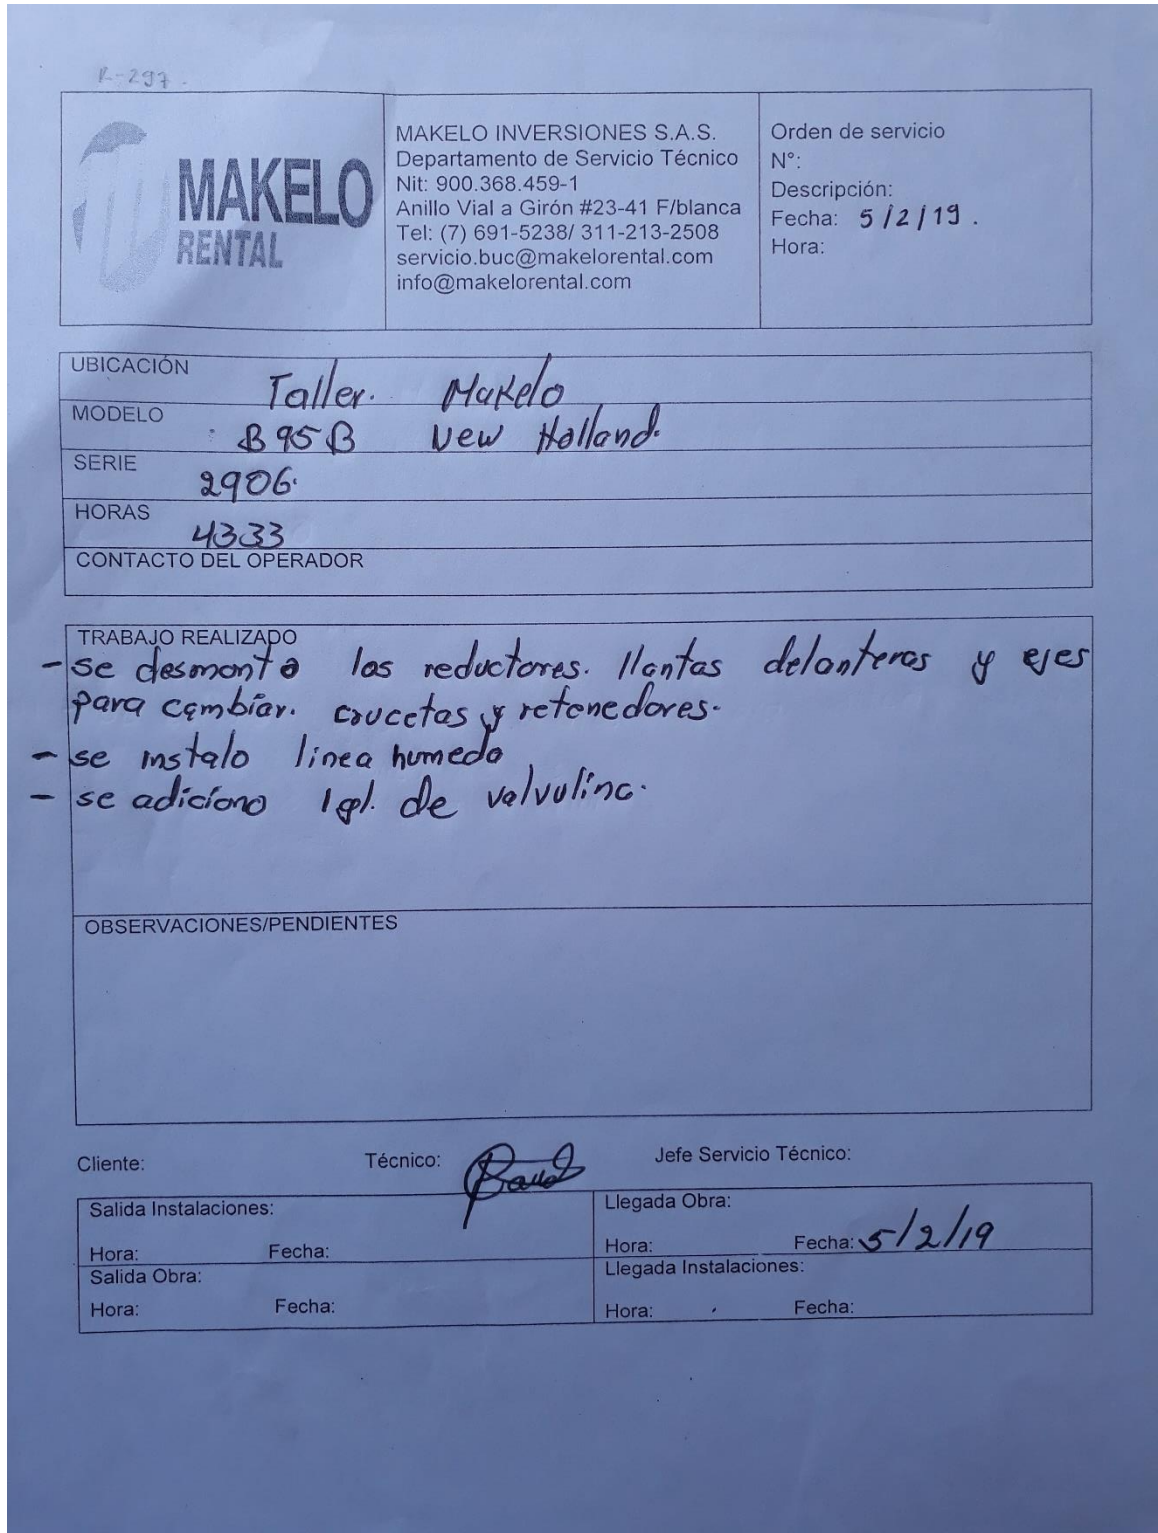 R-297.
MAKELO
RENTAL
MAKELO INVERSIONES S.A.S.
Departamento de Servicio Técnico
Nit: 900.368.459-1
Anillo Vial a Girón #23-41 F/blanca
Tel: (7) 691-5238/ 311-213-2508
servicio.buc@makelorental.com
info@makelorental.com
Orden de servicio
N°:
Descripción:
Fecha: 5/2/19.
Hora:
UBICACIÓN Taller. Makelo
MODELO B95B New Holland.
SERIE 2906.
HORAS 4333
CONTACTO DEL OPERADOR
TRABAJO REALIZADO
- se desmonto los reductores. llantas delanteras y ejes
para cambiar. crucetas y retenedores.
- se instalo linea humedo
- se adiciono 1gl. de valvulina.
OBSERVACIONES/PENDIENTES
Cliente: Técnico: Jefe Servicio Técnico:
Salida Instalaciones: Llegada Obra:
Hora: Fecha: Hora: Fecha: 5/2/19
Salida Obra: Llegada Instalaciones:
Hora: Fecha: Hora: Fecha: